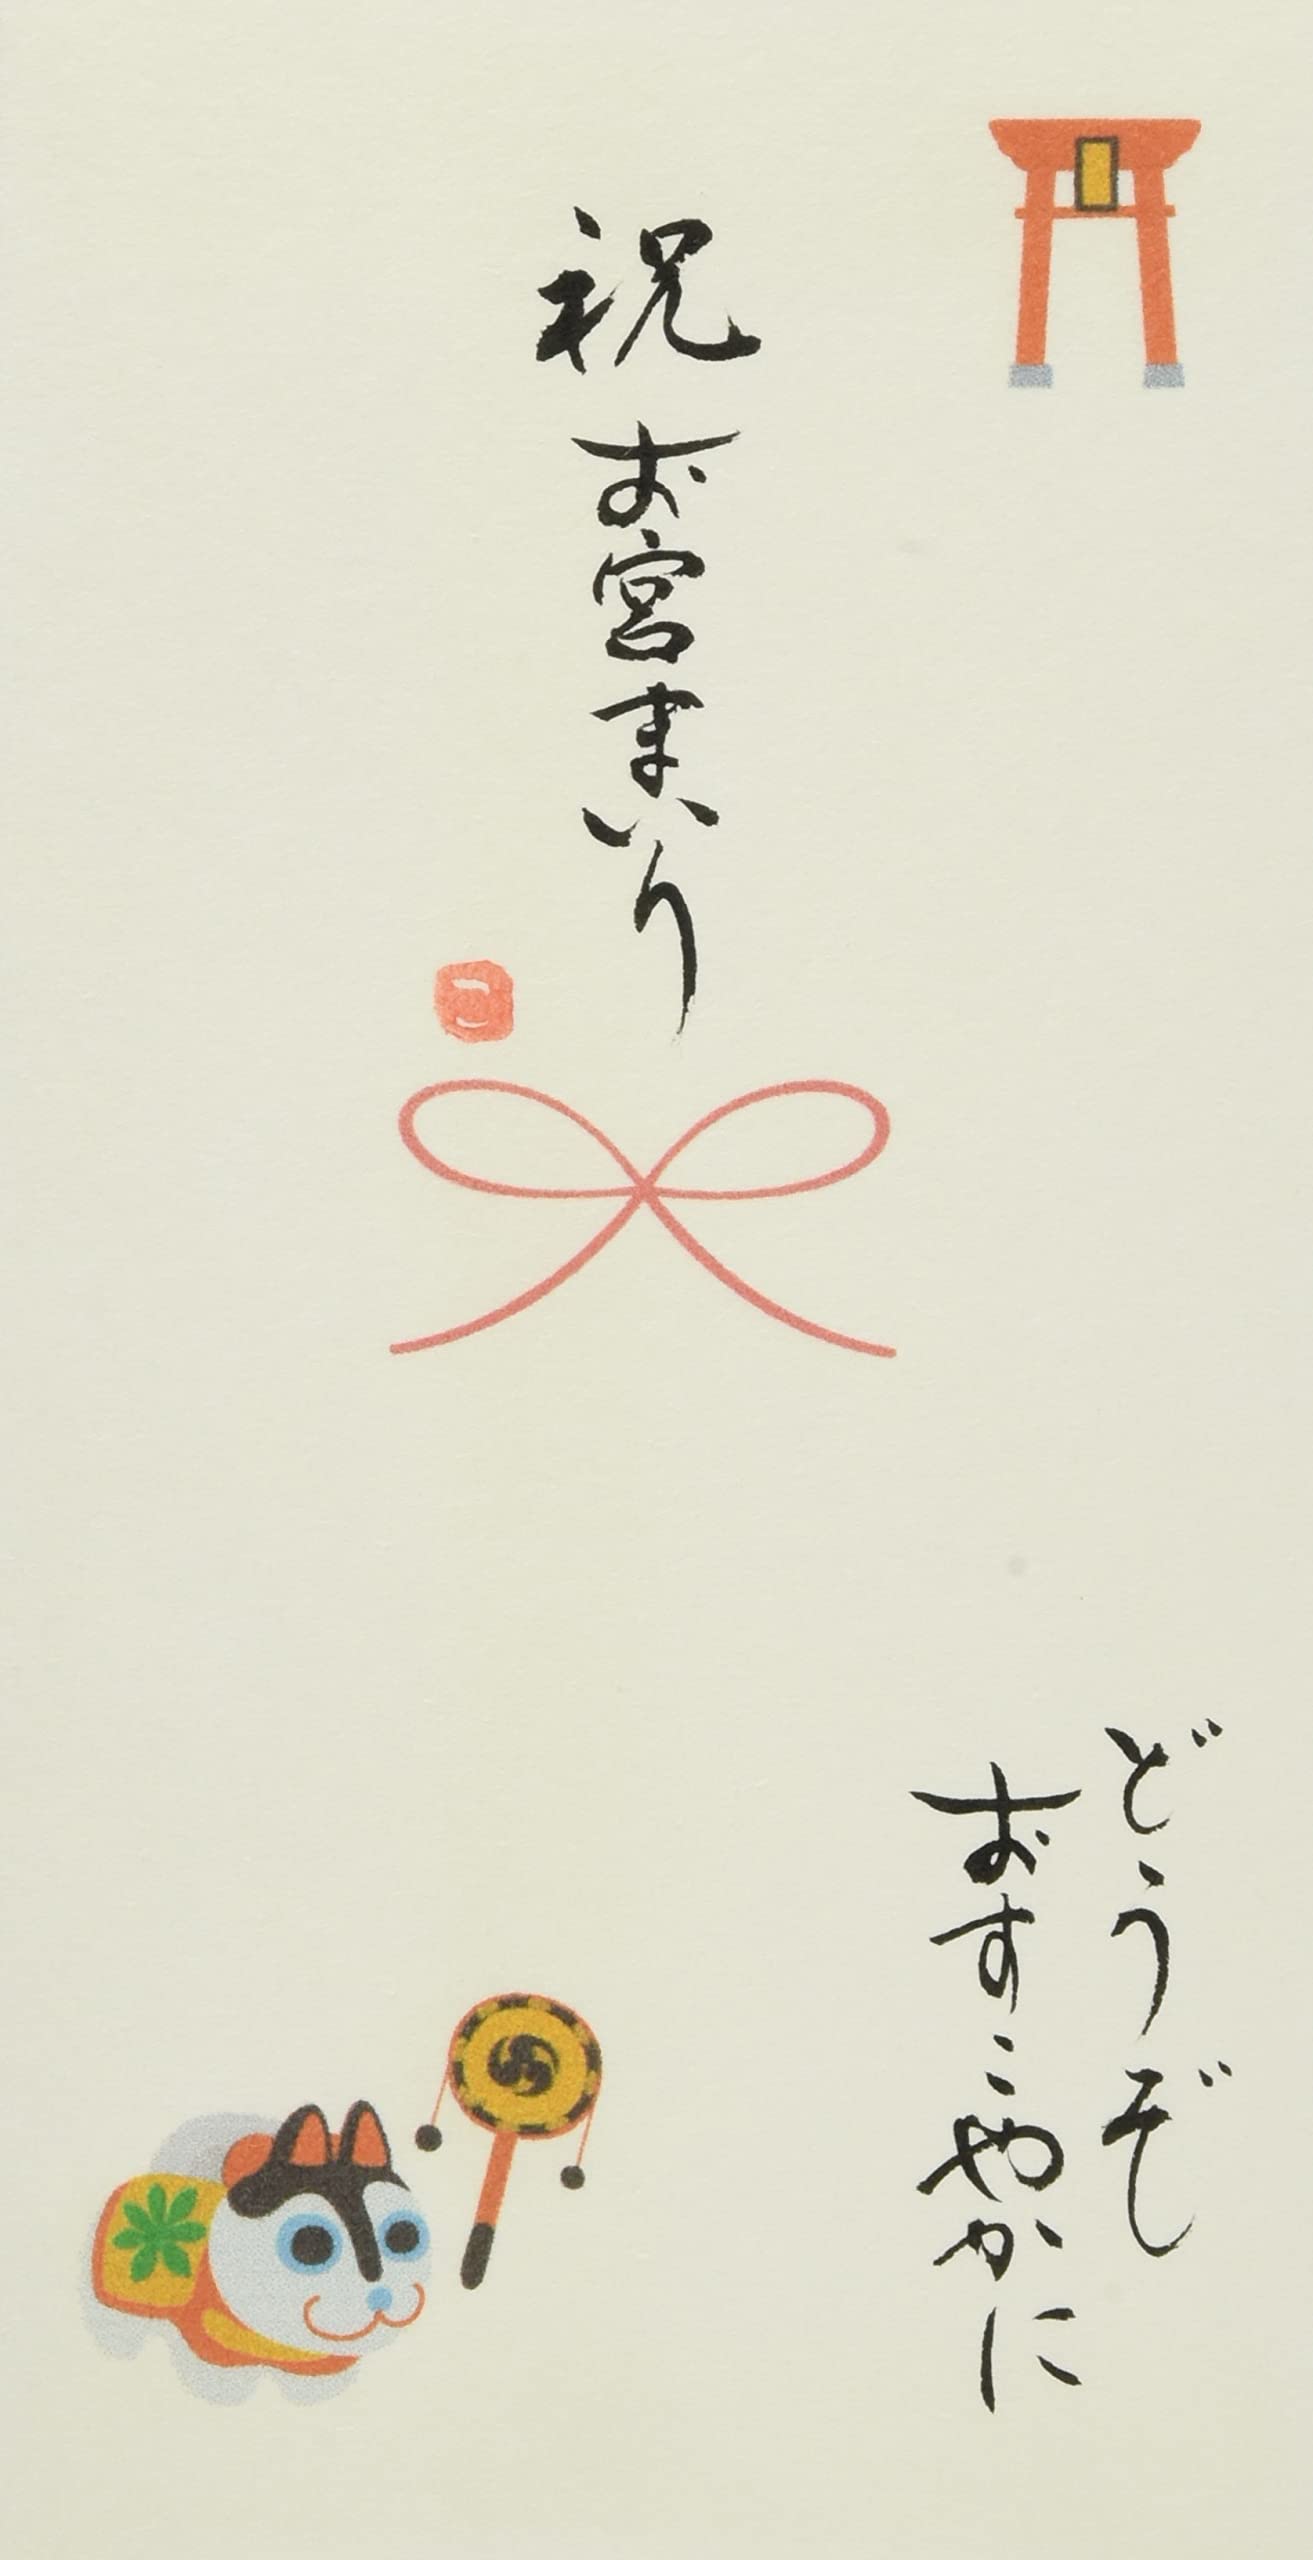 祝 お宮まいり
どうぞ
おすこやかに